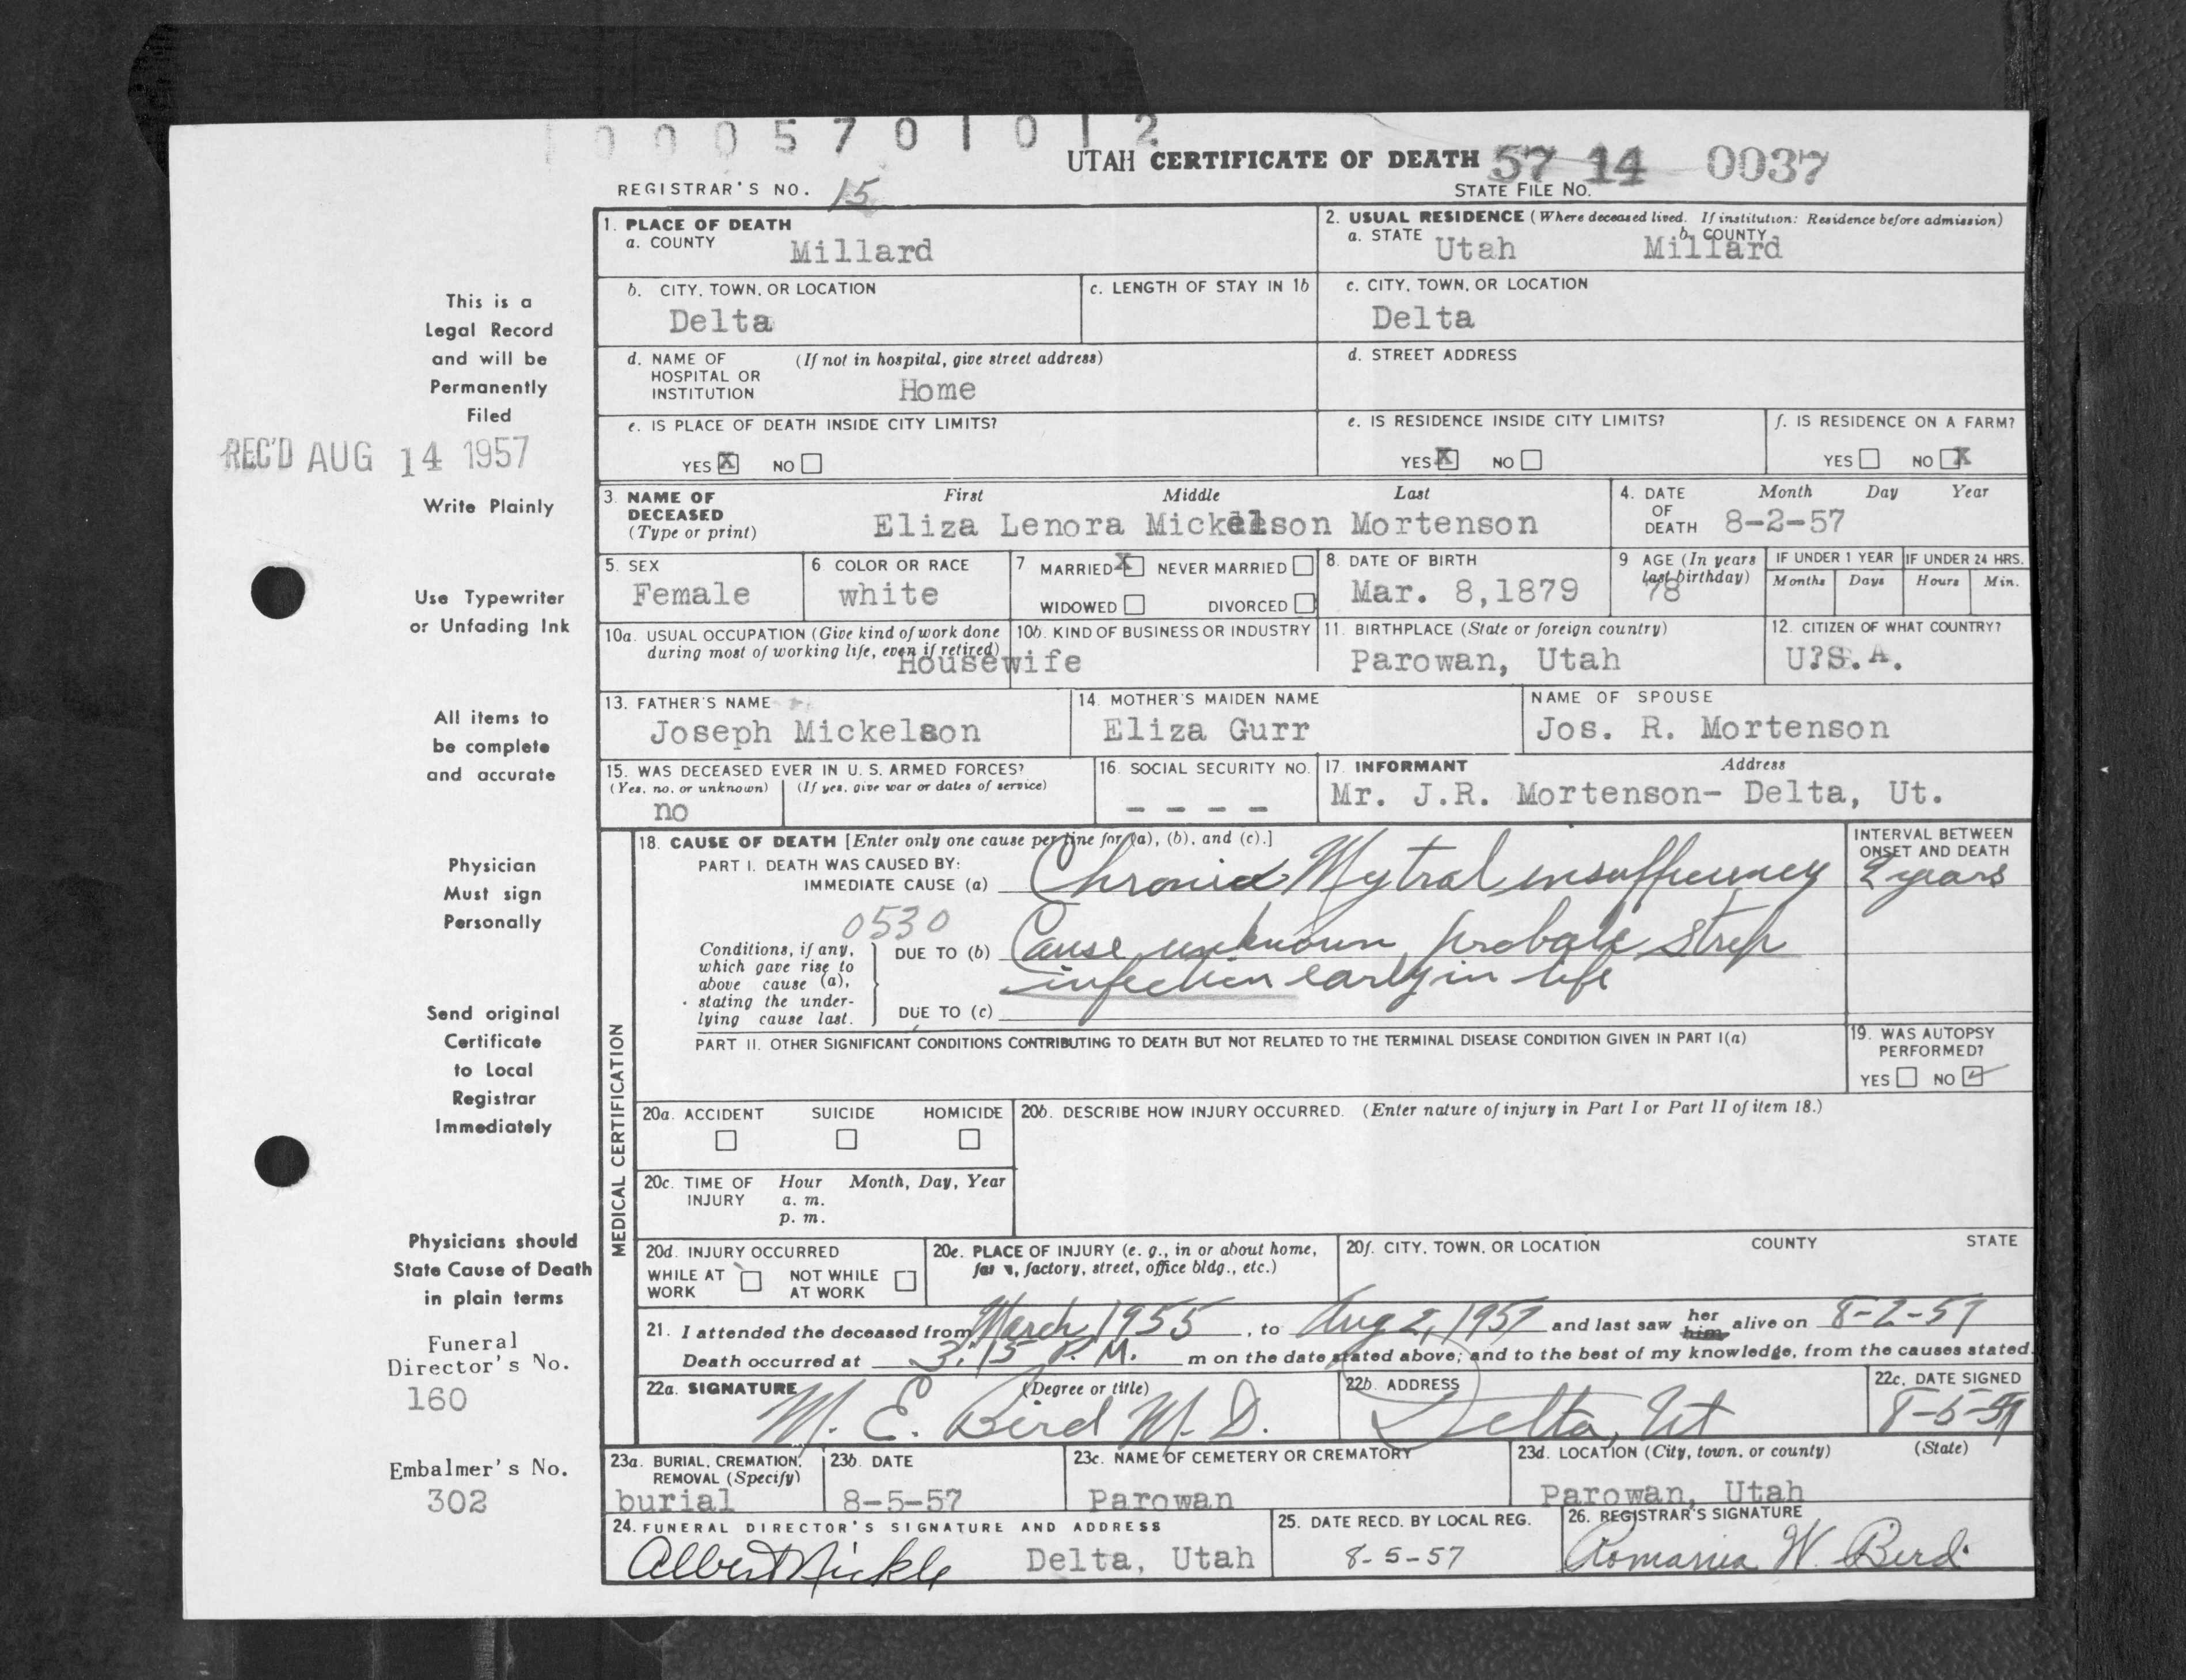 1 0 0 0 5 7 0 1 0 1 2
UTAH CERTIFICATE OF DEATH 57 14 0037
REGISTRAR'S NO. 15 STATE FILE NO.
1. PLACE OF DEATH
a. COUNTY Millard
2. USUAL RESIDENCE (Where deceased lived. If institution: Residence before admission)
a. STATE Utah b. COUNTY Millard
b. CITY, TOWN, OR LOCATION Delta
c. LENGTH OF STAY IN 1b
c. CITY, TOWN, OR LOCATION Delta
d. NAME OF HOSPITAL OR INSTITUTION (If not in hospital, give street address) Home
d. STREET ADDRESS
e. IS PLACE OF DEATH INSIDE CITY LIMITS?
YES X NO
e. IS RESIDENCE INSIDE CITY LIMITS?
YES X NO
f. IS RESIDENCE ON A FARM?
YES NO X
3. NAME OF DECEASED (Type or print) First Middle Last
Eliza Lenora Mickelson Mortenson
4. DATE OF DEATH Month Day Year
8-2-57
5. SEX Female
6. COLOR OR RACE white
7 MARRIED X NEVER MARRIED
WIDOWED DIVORCED
8. DATE OF BIRTH Mar. 8,1879
9 AGE (In years last birthday) 78
IF UNDER 1 YEAR Months Days
IF UNDER 24 HRS. Hours Min.
10a. USUAL OCCUPATION (Give kind of work done during most of working life, even if retired)
Housewife
10b. KIND OF BUSINESS OR INDUSTRY
11. BIRTHPLACE (State or foreign country)
Parowan, Utah
12. CITIZEN OF WHAT COUNTRY?
U?S.A.
13. FATHER'S NAME
Joseph Mickelson
14. MOTHER'S MAIDEN NAME
Eliza Gurr
NAME OF SPOUSE
Jos. R. Mortenson
15. WAS DECEASED EVER IN U. S. ARMED FORCES?
(Yes, no, or unknown) (If yes, give war or dates of service)
no
16. SOCIAL SECURITY NO.
- - - -
17. INFORMANT Address
Mr. J.R. Mortenson- Delta, Ut.
MEDICAL CERTIFICATION
18. CAUSE OF DEATH [Enter only one cause per line for (a), (b), and (c).]
PART I. DEATH WAS CAUSED BY:
IMMEDIATE CAUSE (a) Chronic Mytral insufficiency
INTERVAL BETWEEN ONSET AND DEATH
2 years
0530
Conditions, if any, which gave rise to above cause (a), stating the underlying cause last.
DUE TO (b) Cause unknown probable strep
infection early in life
DUE TO (c)
PART II. OTHER SIGNIFICANT CONDITIONS CONTRIBUTING TO DEATH BUT NOT RELATED TO THE TERMINAL DISEASE CONDITION GIVEN IN PART I(a)
19. WAS AUTOPSY PERFORMED?
YES NO ✓
20a. ACCIDENT SUICIDE HOMICIDE
20b. DESCRIBE HOW INJURY OCCURRED. (Enter nature of injury in Part I or Part II of item 18.)
20c. TIME OF INJURY Hour Month, Day, Year
a. m.
p. m.
20d. INJURY OCCURRED
WHILE AT WORK NOT WHILE AT WORK
20e. PLACE OF INJURY (e. g., in or about home, farm, factory, street, office bldg., etc.)
20f. CITY, TOWN, OR LOCATION COUNTY STATE
21. I attended the deceased from March 1955, to Aug 2, 1957 and last saw her him alive on 8-2-57
Death occurred at 3:15 P.M. m on the date stated above; and to the best of my knowledge, from the causes stated.
22a. SIGNATURE (Degree or title)
M. E. Bird M. D.
22b. ADDRESS
Delta, Ut
22c. DATE SIGNED
8-5-57
23a. BURIAL, CREMATION, REMOVAL (Specify)
burial
23b. DATE
8-5-57
23c. NAME OF CEMETERY OR CREMATORY
Parowan
23d. LOCATION (City, town, or county) (State)
Parowan, Utah
24. FUNERAL DIRECTOR'S SIGNATURE AND ADDRESS
Albert Nickle Delta, Utah
25. DATE RECD. BY LOCAL REG.
8-5-57
26. REGISTRAR'S SIGNATURE
Romania W. Bird
This is a
Legal Record
and will be
Permanently
Filed
REC'D AUG 14 1957
Write Plainly
Use Typewriter
or Unfading Ink
All items to
be complete
and accurate
Physician
Must sign
Personally
Send original
Certificate
to Local
Registrar
Immediately
Physicians should
State Cause of Death
in plain terms
Funeral
Director's No.
160
Embalmer's No.
302